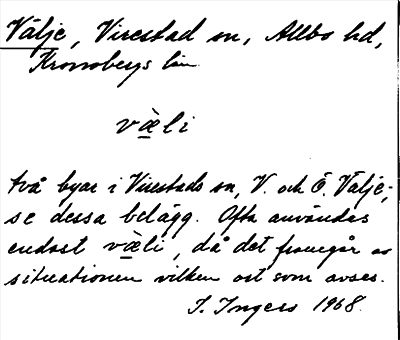 Välje, Virestad sn, Allbo hd,
Kronobergs län
væ̀li
två byar i Virestads sn, V. och Ö. Välje,
se dessa belägg. Ofta användes
endast væ̀li, då det framgår av
situationen vilken ort som avses.
I. Ingers 1968.